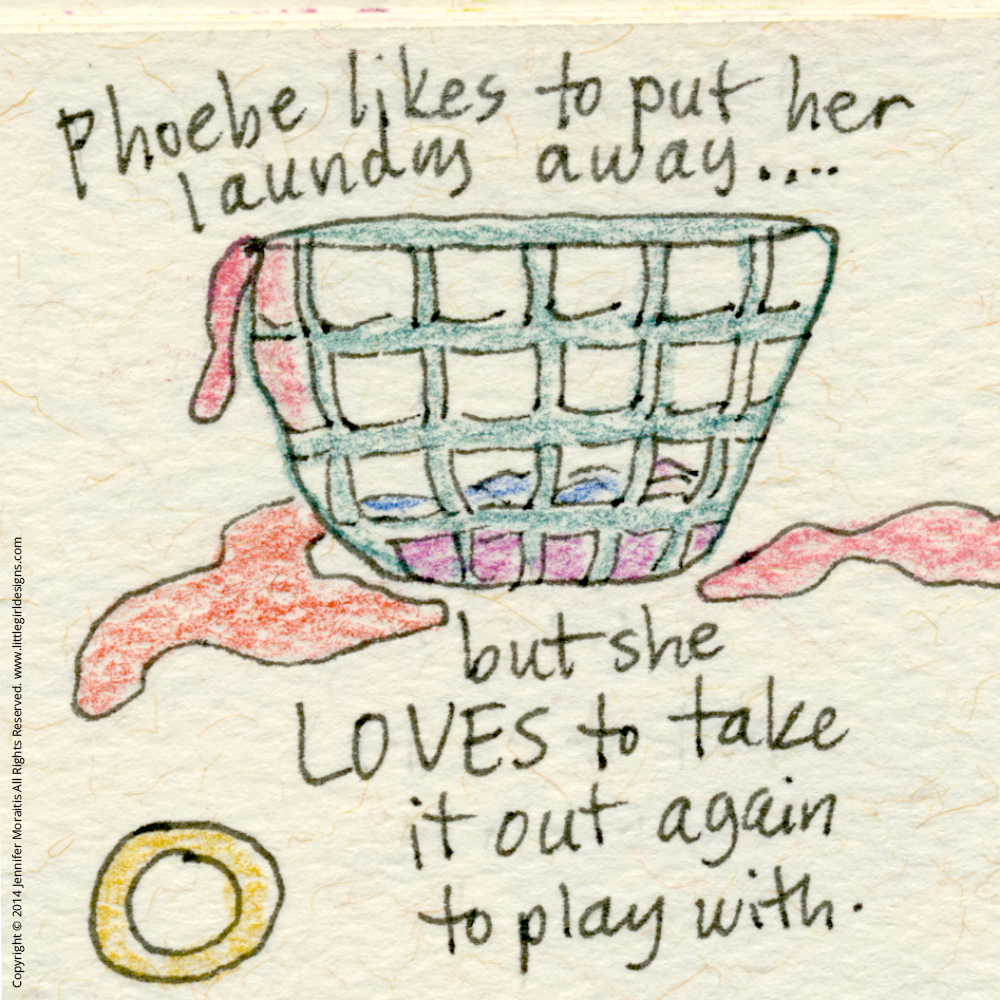 Phoebe likes to put her
laundry away....
but she
LOVES to take
it out again
to play with.
Copyright © 2014 Jennifer Moraitis All Rights Reserved. www.littlegirldesigns.com